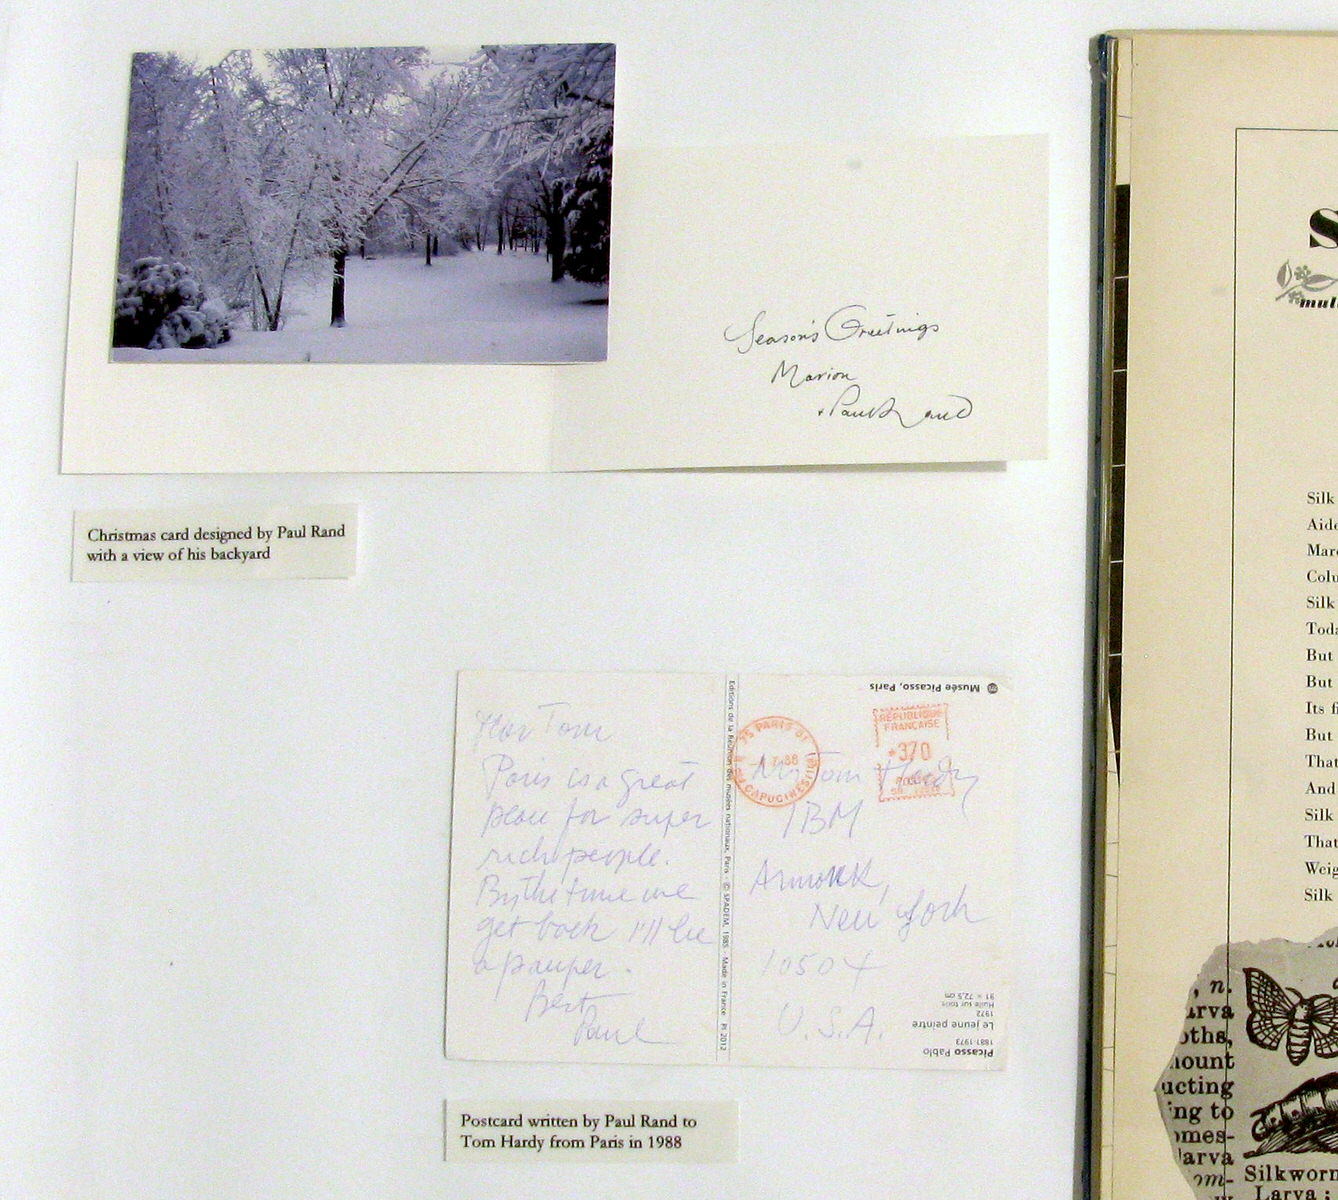 Season's Greetings
Marion
+ Paul Rand
Christmas card designed by Paul Rand
with a view of his backyard
Dear Tom
Paris is a great
place for super
rich people.
By the time we
get back I'll be
a pauper.
Best
Paul
Editions de la Réunion des musées nationaux, Paris - © SPADEM, 1985 - Made in France PI 2012
Musée Picasso, Paris
75 PARIS
CAPUCINES
RÉPUBLIQUE
FRANÇAISE
*370
POSTES
Mr Tom Hardy
IBM
Armonk,
New York
10504
U.S.A.
Picasso Pablo
1881-1973
Le jeune peintre
1972
Huile sur toile
91 × 72,5 cm
Postcard written by Paul Rand to
Tom Hardy from Paris in 1988
S
mul
Silk
Aide
Marc
Colu
Silk
Toda
But
But
Its f
But
That
And
Silk
That
Weig
Silk
, n.
arva
oths,
nount
ucting
ing to
omes-
larva
om-
Silkworm
Larva